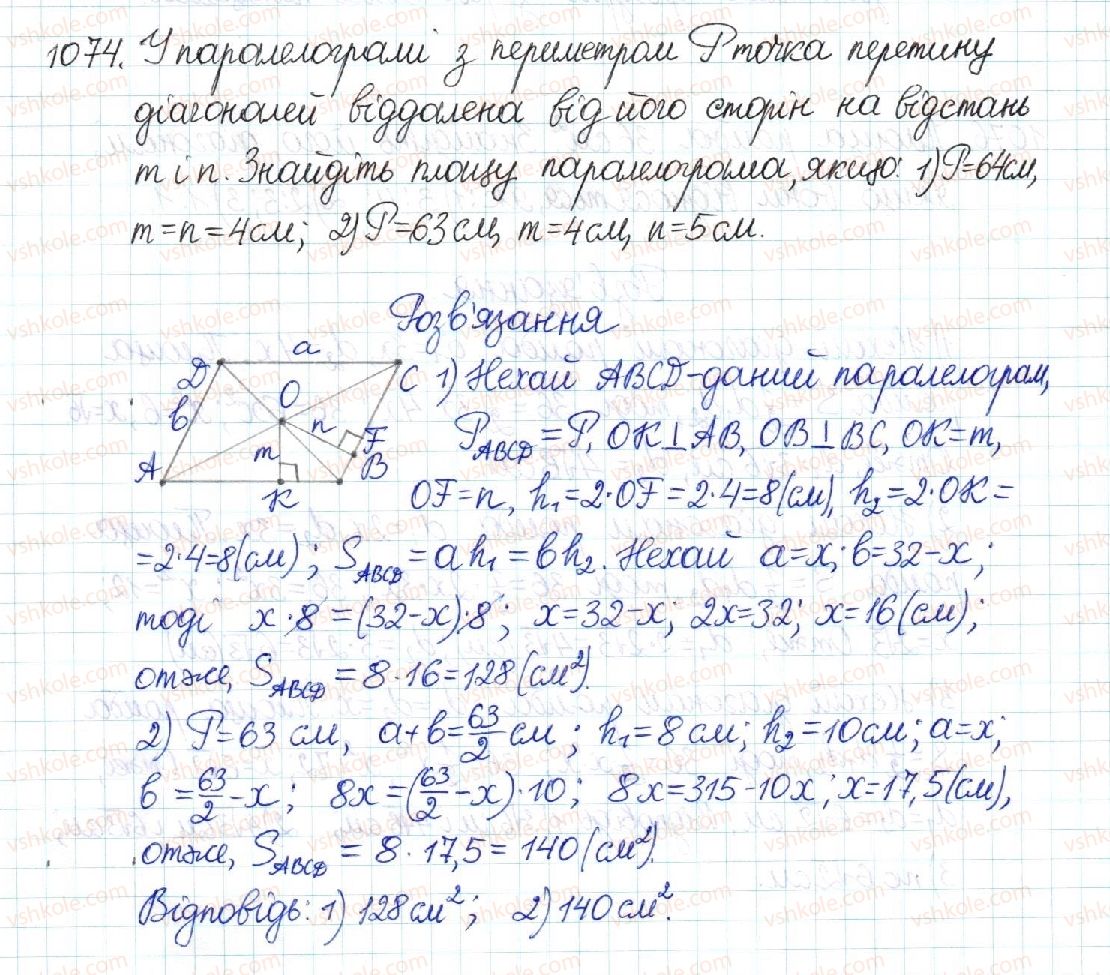 1074. У паралелограмі з периметром P точка перетину
діагоналей віддалена від його сторін на відстань
m і n. Знайдіть площу паралелограма, якщо: 1) P=64см,
m=n=4см; 2) P=63см, m=4см, n=5см.
Розв'язання
a
D C
b O
n F
m
A K B
1) Нехай ABCD-даний паралелограм,
P_ABCD=P, OK⊥AB, OB⊥BC, OK=m,
OF=n, h₁=2·OF=2·4=8(см), h₂=2·OK=
=2·4=8(см); S_ABCD=ah₁=bh₂. Нехай a=x; b=32-x;
тоді x·8=(32-x)·8; x=32-x; 2x=32; x=16(см);
отже, S_ABCD=8·16=128(см²).
2) P=63 см, a+b=63/2 см; h₁=8см; h₂=10см; a=x;
b=63/2-x; 8x=(63/2-x)·10; 8x=315-10x; x=17,5(см),
отже, S_ABCD=8·17,5=140(см²).
Відповідь: 1) 128см²; 2) 140см².
vshkole.com